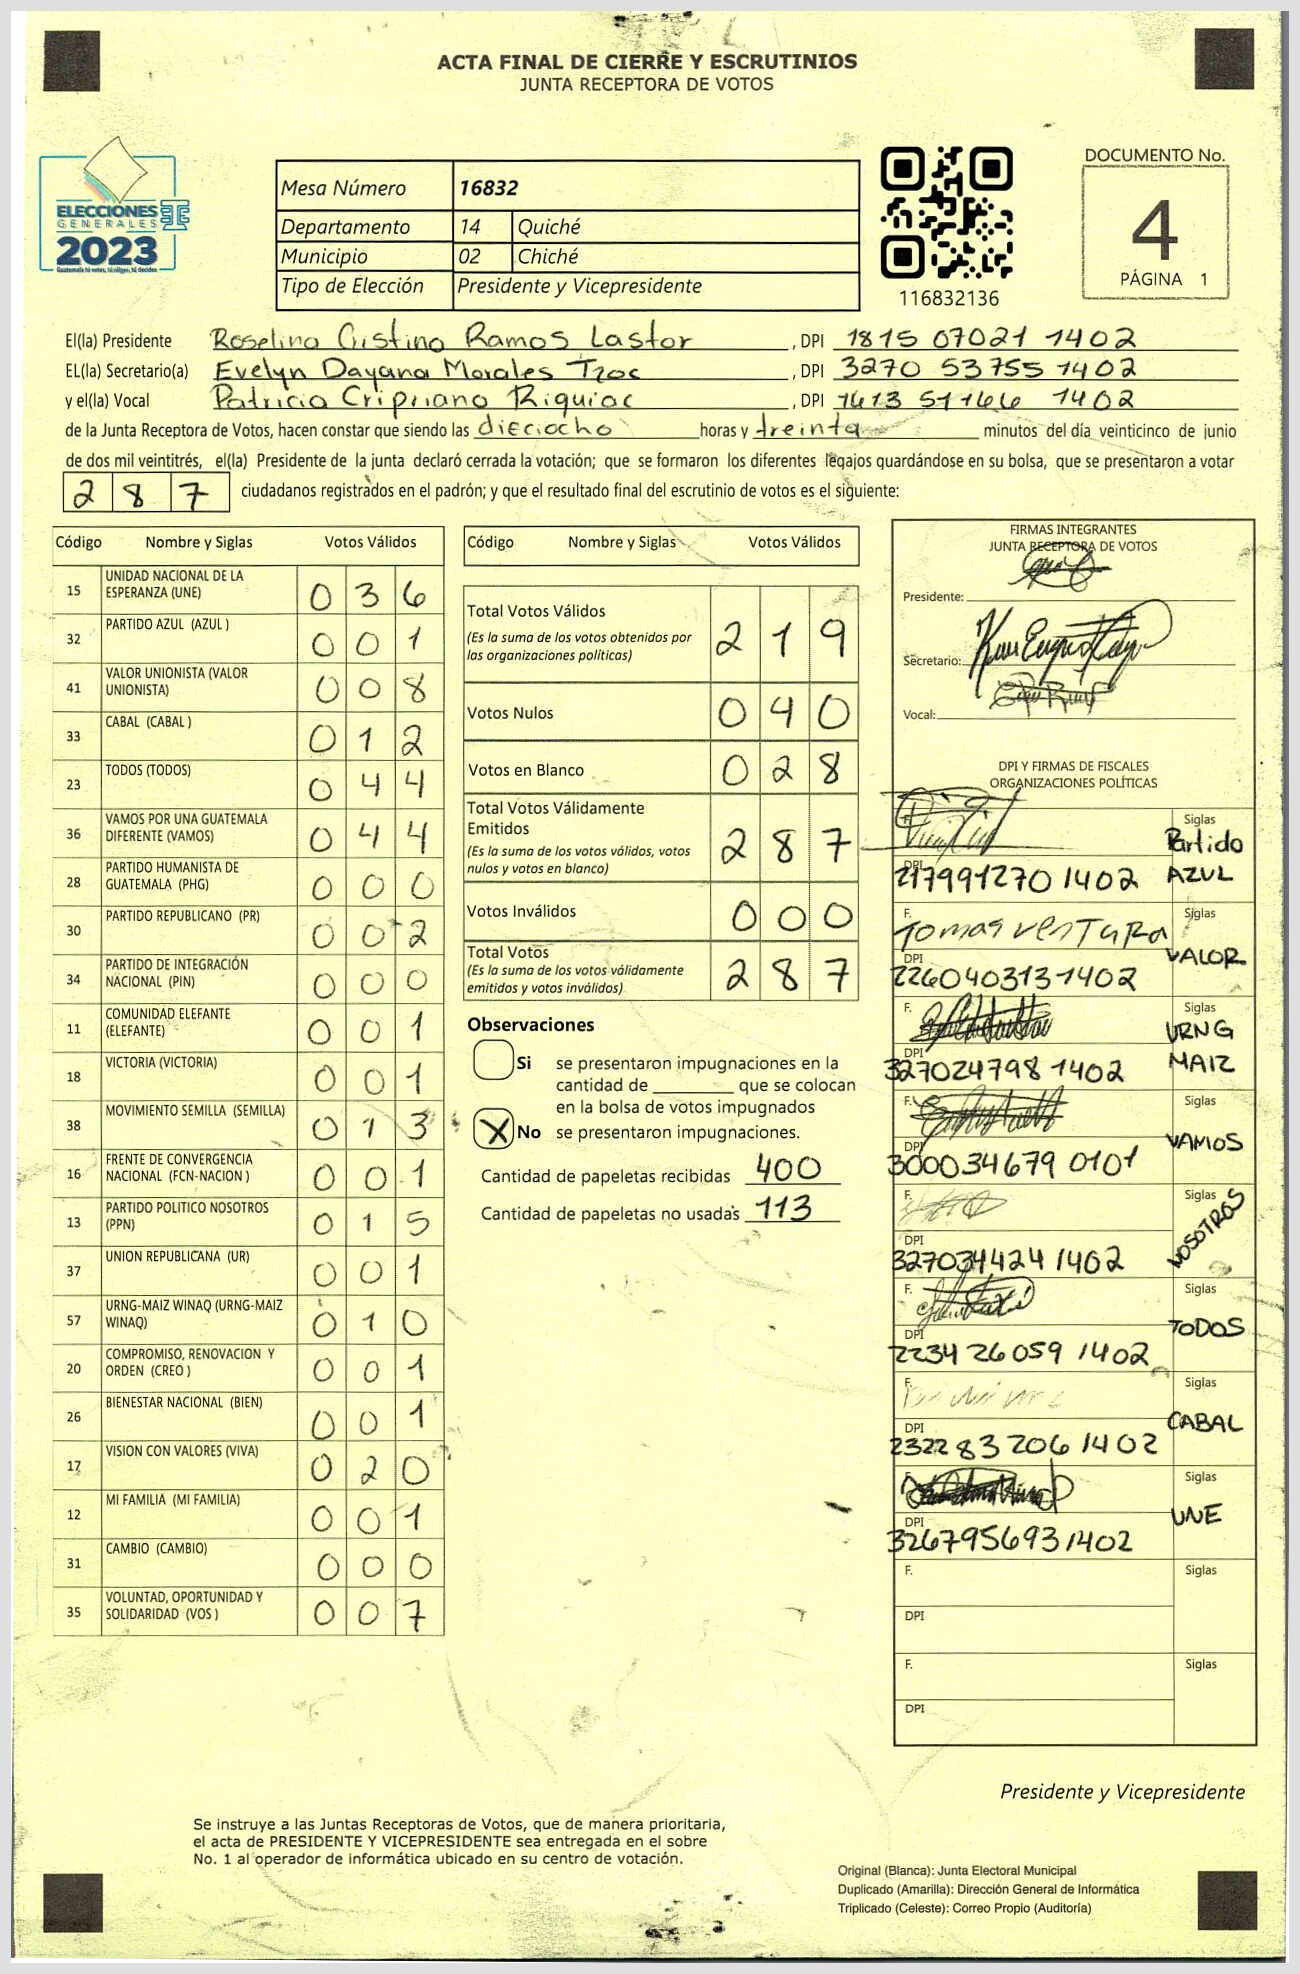 ACTA FINAL DE CIERRE Y ESCRUTINIOS
JUNTA RECEPTORA DE VOTOS
ELECCIONES
GENERALES
2023
Guatemala tú votes, tú eliges, tú decides
Mesa Número 16832
Departamento 14 Quiché
Municipio 02 Chiché
Tipo de Elección Presidente y Vicepresidente
116832136
DOCUMENTO No.
4
PÁGINA 1
El(la) Presidente Roselina Cristina Ramos Lastor, DPI 1815 07021 1402
EL(la) Secretario(a) Evelyn Dayana Morales Tzoc, DPI 3270 53755 1402
y el(la) Vocal Patricia Cripriano Riquiac, DPI 1613 51166 1402
de la Junta Receptora de Votos, hacen constar que siendo las dieciocho horas y treinta minutos del día veinticinco de junio
de dos mil veintitrés, el(la) Presidente de la junta declaró cerrada la votación; que se formaron los diferentes legajos quardándose en su bolsa, que se presentaron a votar
287 ciudadanos registrados en el padrón; y que el resultado final del escrutinio de votos es el siguiente:
Código Nombre y Siglas Votos Válidos
15 UNIDAD NACIONAL DE LA ESPERANZA (UNE) 036
32 PARTIDO AZUL (AZUL ) 001
41 VALOR UNIONISTA (VALOR UNIONISTA) 008
33 CABAL (CABAL ) 012
23 TODOS (TODOS) 044
36 VAMOS POR UNA GUATEMALA DIFERENTE (VAMOS) 044
28 PARTIDO HUMANISTA DE GUATEMALA (PHG) 000
30 PARTIDO REPUBLICANO (PR) 002
34 PARTIDO DE INTEGRACIÓN NACIONAL (PIN) 000
11 COMUNIDAD ELEFANTE (ELEFANTE) 001
18 VICTORIA (VICTORIA) 001
38 MOVIMIENTO SEMILLA (SEMILLA) 013
16 FRENTE DE CONVERGENCIA NACIONAL (FCN-NACION ) 001
13 PARTIDO POLITICO NOSOTROS (PPN) 015
37 UNION REPUBLICANA (UR) 001
57 URNG-MAIZ WINAQ (URNG-MAIZ WINAQ) 010
20 COMPROMISO, RENOVACION Y ORDEN (CREO ) 001
26 BIENESTAR NACIONAL (BIEN) 001
17 VISION CON VALORES (VIVA) 020
12 MI FAMILIA (MI FAMILIA) 001
31 CAMBIO (CAMBIO) 000
35 VOLUNTAD, OPORTUNIDAD Y SOLIDARIDAD (VOS ) 007
Código Nombre y Siglas Votos Válidos
Total Votos Válidos 219
(Es la suma de los votos obtenidos por
las organizaciones políticas)
Votos Nulos 040
Votos en Blanco 028
Total Votos Válidamente
Emitidos 287
(Es la suma de los votos válidos, votos
nulos y votos en blanco)
Votos Inválidos 000
Total Votos 287
(Es la suma de los votos válidamente
emitidos y votos inválidos)
Observaciones
Si se presentaron impugnaciones en la
cantidad de ________ que se colocan
en la bolsa de votos impugnados
X No se presentaron impugnaciones.
Cantidad de papeletas recibidas 400
Cantidad de papeletas no usadas 113
FIRMAS INTEGRANTES
JUNTA RECEPTORA DE VOTOS
Presidente:
Secretario:
Vocal:
DPI Y FIRMAS DE FISCALES
ORGANIZACIONES POLÍTICAS
F. Siglas Partido AZUL
DPI 217991270 1402
F. Tomas Ventura Siglas VALOR
DPI 226040313 1402
F. Siglas URNG MAIZ
DPI 327024798 1402
F. Siglas VAMOS
DPI 300034679 0101
F. Siglas NOSOTROS
DPI 327034424 1402
F. Siglas TODOS
DPI 2234 26059 1402
F. Siglas CABAL
DPI 2322 83206 1402
F. Siglas UNE
DPI 326795693 1402
F. Siglas
DPI
F. Siglas
DPI
Presidente y Vicepresidente
Se instruye a las Juntas Receptoras de Votos, que de manera prioritaria,
el acta de PRESIDENTE Y VICEPRESIDENTE sea entregada en el sobre
No. 1 al operador de informática ubicado en su centro de votación.
Original (Blanca): Junta Electoral Municipal
Duplicado (Amarilla): Dirección General de Informática
Triplicado (Celeste): Correo Propio (Auditoría)